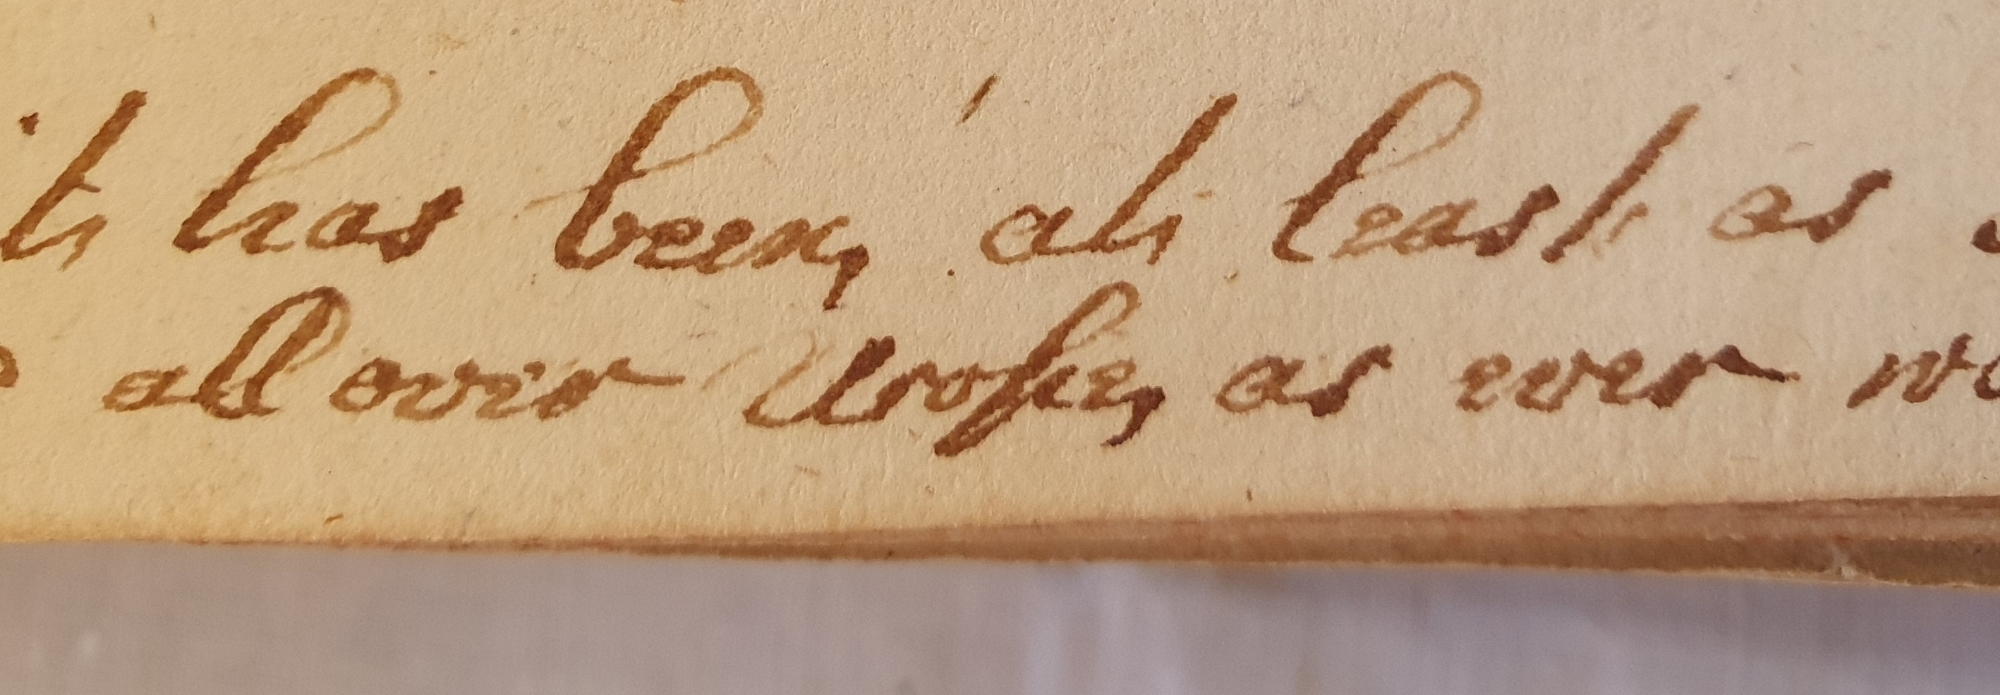 it has been, at least as
all over Urope, as ever